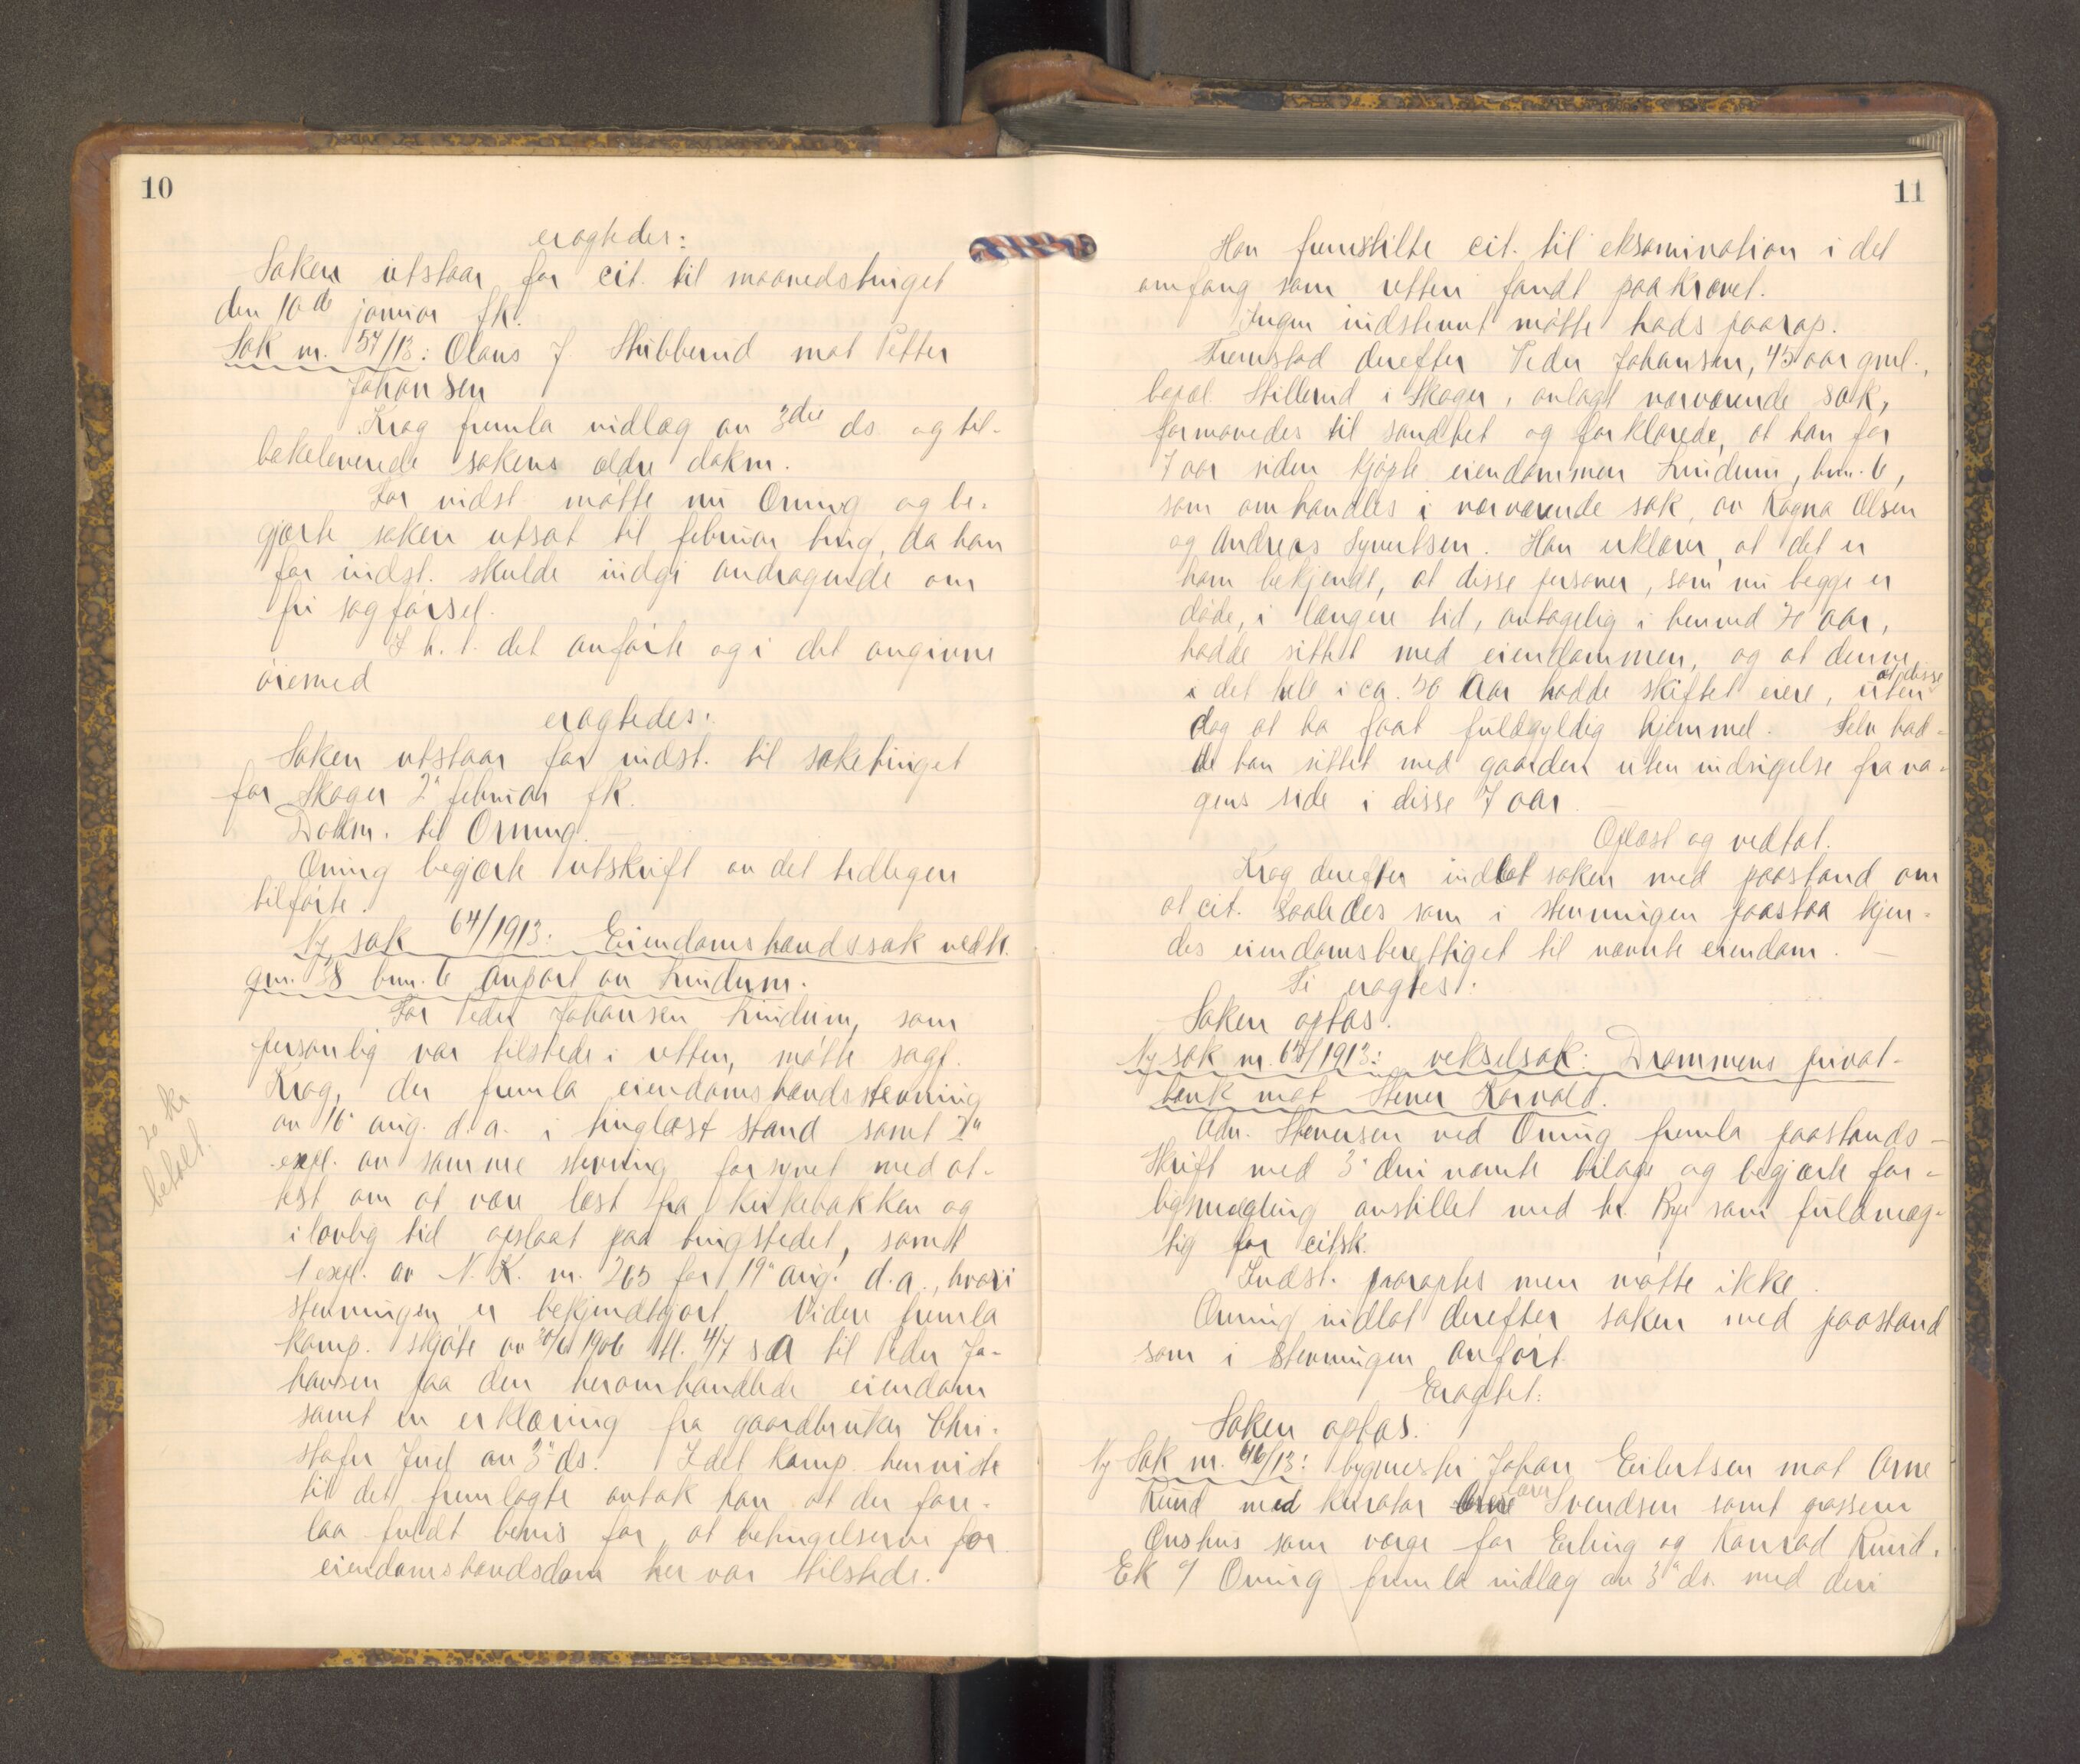 10
eragtedes:
Saken utstaar for cit. til maanedstinget
den 10de januar fk.
Sak nr. 57/13: Olaus J Stubberud mot Petter
Johansen
Krag fremla indlæg av 3die ds og til-
bakeleverede sakens ældre dokm.
For indst. møtte nu Orning og be-
gjærte saken utsat til februar ting, da han
for indst. skulde indgi andragende om
fri sagførsel.
I h. t. det anførte og i det angivne
øiemed
eragtedes:
Saken utstaar for indst. til saketinget
for Skoger 2' februar fk.
Dokm. til Orning.
Orning begjærte utskrift av det tidligere
tilførte.
Ny sak 64/1913: Eiendomshævdssak vedk.
gnr. 38 bnr. 6 anpart av Lindum.
For Peder Johansen Lindum, som
personlig var tilstede i retten, møtte sagf.
Krag, der fremla eiendomshævdsstevning
av 16' aug. d. a. i tinglæst stand samt 2"
expl. av samme stevning forsynet med at-
test om at være læst fra kirkebakken og
i lovlig tid opslaat paa tingstedet, samt
1 expl. av N. K. nr. 265 for 19" aug. d. a., hvori
stevningen er bekjendtgjort. Videre fremla
komp. skjøte av 30/6 1906 tl. 4/7 s a til Peder Jo-
hansen paa den heromhandlede eiendom
samt en erklæring fra gaardbruker Chri-
stofer Juel av 3" ds. Idet komp. henviste
til det fremlagte antok han at der fore-
laa fuldt bevis for, at betingelserne for
eiendomshævdsdom her var tilstede.
20 kr
betalt.
11
Han fremstilte cit. til eksamination i det
omfang som retten fandt paakrævet.
Ingen indstevnt møtte hads paarop.
Fremstod derefter Peder Johansen, 45 aar gml.,
bopæl Stillerud i Skoger, anlagt nærværende sak,
formanedes til sandhet og forklarede, at han for
7 aar siden kjøpte eiendommen Lindum, bnr. 6,
som omhandles i nærværende sak, av Ragna Olsen
og Andreas Syvertsen. Han erklærer, at det er
ham bekjendt, at disse personer, som nu begge er
døde, i længere tid, antagelig i henved 70 aar,
hadde sittet med eiendommen, og at denne
i det hele i ca. 50 aar hadde skiftet eiere, uten at disse
dog at ha faat fuldgyldig hjemmel. Selv had-
de han sittet med gaarden uten indsigelse fra no-
gens side i disse 7 aar.
Oplæst og vedtat.
Krag derefter indlot saken med paastand om
at cit. saaledes som i stevningen paastaa kjen-
des eiendomsberettiget til nævnte eiendom.
Ti eragtest:
Saken optas.
Ny sak nr. 65/1913: vekselsak: Drammens privat-
bank mot Stener Korvald.
Adv. Stenersen ved Orning fremla paastands-
skrift med 3 deri nævnte bilage og begjærte for-
ligsmægling anstillet med hr. Bye som fuldmæg-
tig for citsk.
Indst. paaroptes men møtte ikke.
Orning indlot derefter saken med paastand
som i stevningen anført.
Eragtet:
Saken optas.
Ny Sak nr. 66/13: bygmester Johan Eilertsen mot Arne
Ruud med kurator lærer Svendsen samt passerer
Onshus som værge for Erling og Konrad Ruud.
EK o/ Orning fremla indlæg av 3" ds. med deri